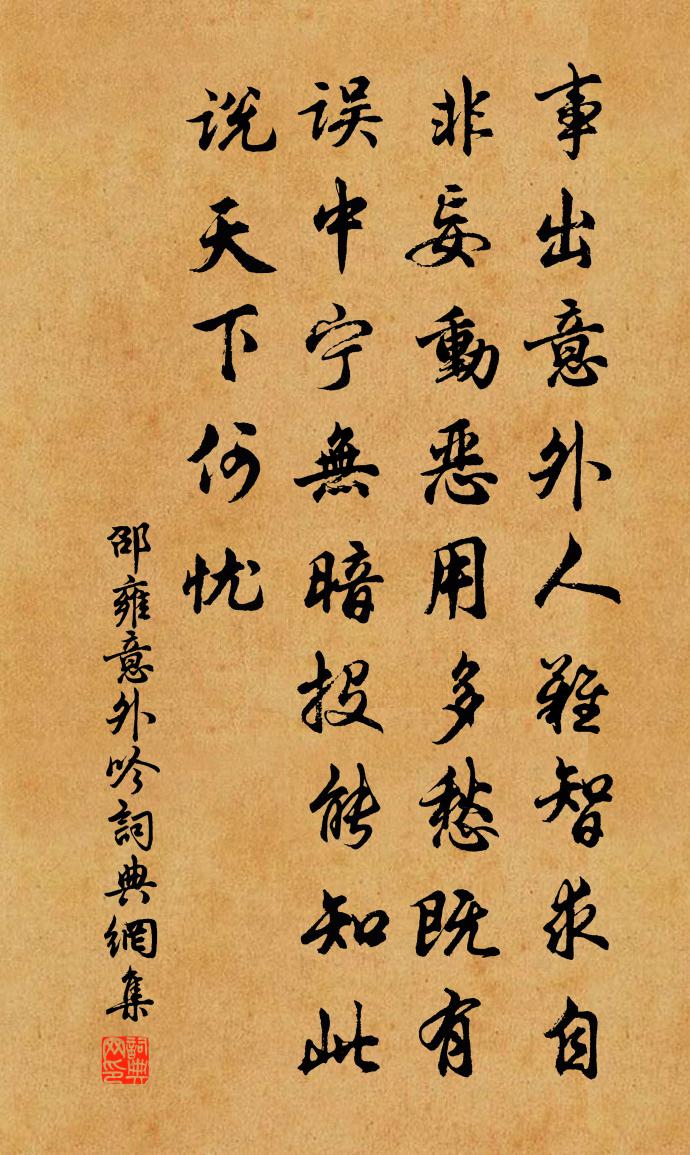 事出意外人難智求自
非妄動恶用多愁既有
误中宁無暗投能知此
说天下何忧
邵雍意外吟詞典網集
詞典网印